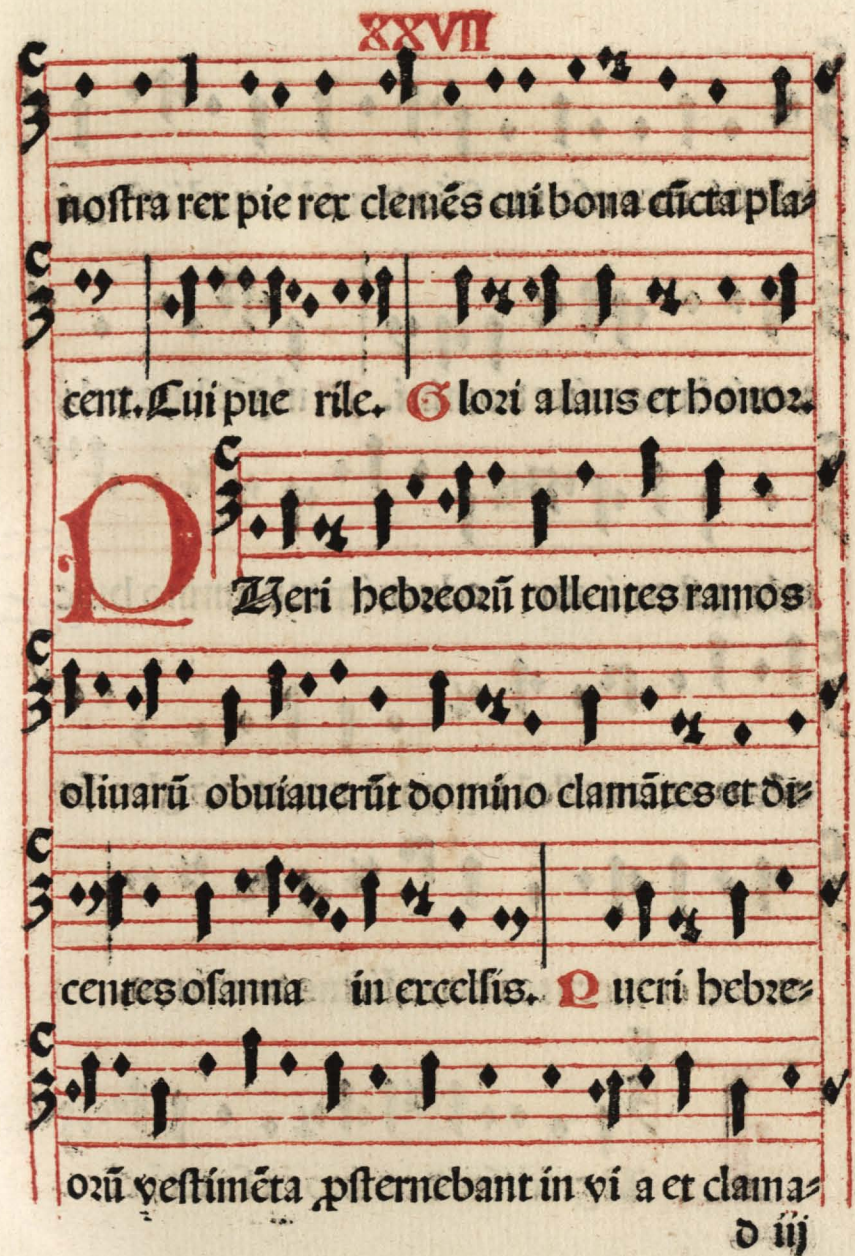 XXVII
nostra rex pie rex clemēs cui bona cūcta pla⸗
cent. Cui pue rile. Glori a laus et honor.
PUeri hebreorū tollentes ramos
olivarū obuiauerūt domino clamātes et di⸗
centes osanna in excelsis. Pueri hebre⸗
orū vestimēta ꝓsternebant in vi a et clama⸗
d iij